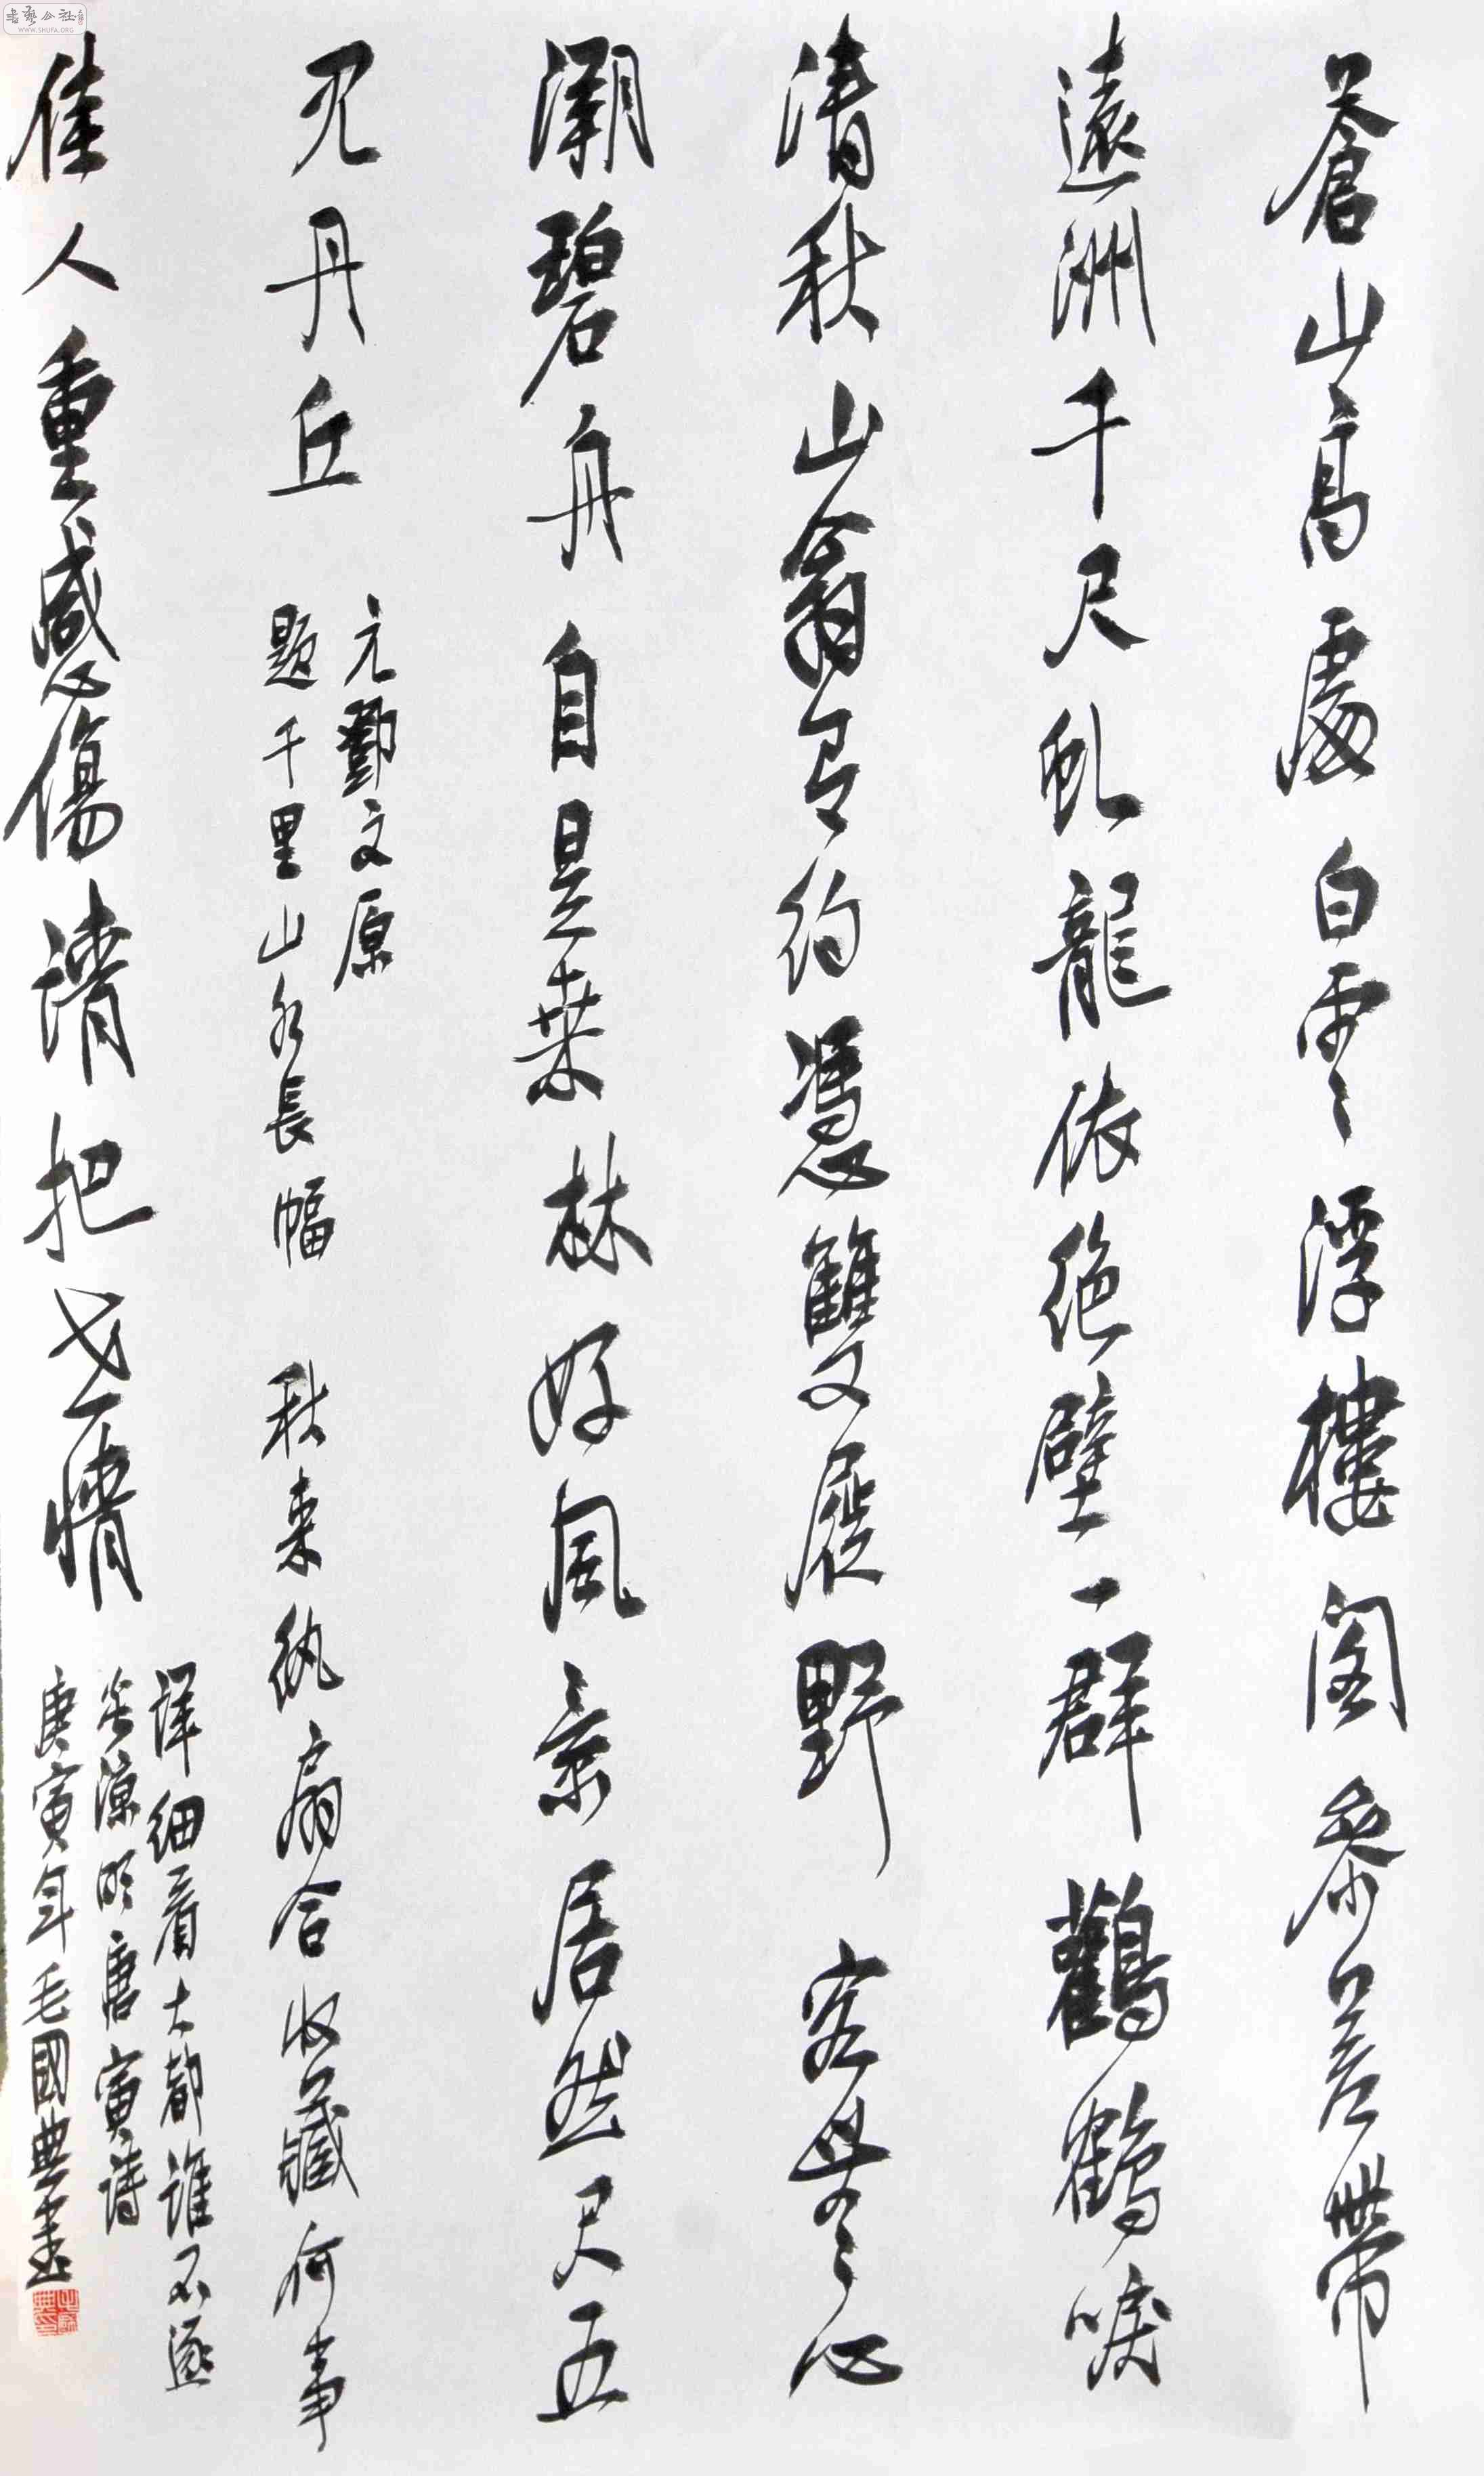 蒼山高處白雲浮樓閣參差帶
遠洲千尺虬龍依絕壁一群鸛鶴唳
清秋山翁有約憑雙屐野客無心
溯碧舟自是桒林好風景居然尺五
見丹丘
元鄧文原
題千里山水長幅
秋來紈扇合收藏何事
佳人重感傷請把世情
詳細看大都誰不逐
炎涼明唐寅詩
庚寅年毛國典書
書藝公社
WWW.SHUFA.ORG